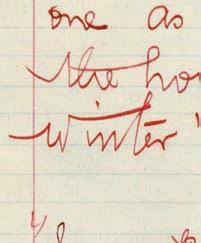 one as
the ho
winter"